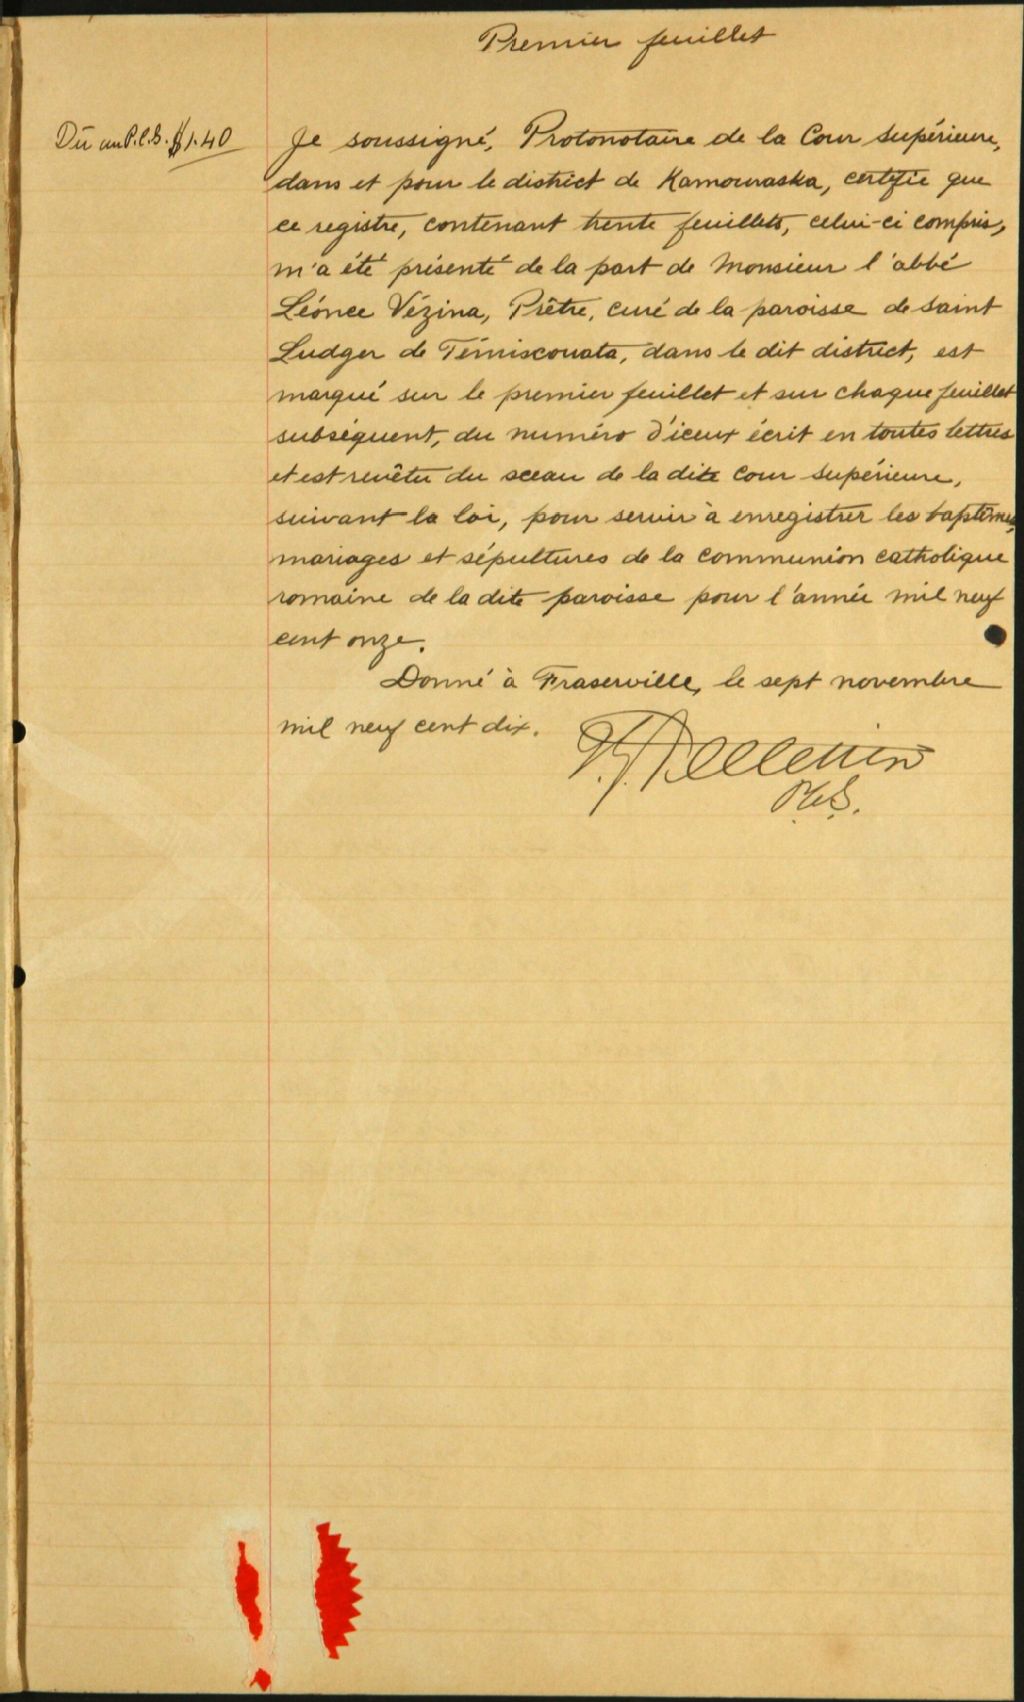 Premier feuillet
Dû au P.C.S. $1.40
Je soussigné, Protonotaire de la Cour Supérieure,
dans et pour le district de Kamouraska, certifie que
ce registre, contenant trente feuillets, celui-ci compris,
m'a été présenté de la part de Monsieur l'abbé
Léonce Vézina, Prêtre, curé de la paroisse de Saint
Ludger de Témiscouata, dans le dit district, est
marqué sur le premier feuillet et sur chaque feuillet
subséquent, du numéro d'iceux écrit en toutes lettres
et est revêtu du sceau de la dite Cour Supérieure,
suivant la loi, pour servir à enregistrer les baptêmes,
mariages et sépultures de la Communion Catholique
romaine de la dite paroisse pour l'année mil neuf
cent onze.
Donné à Fraserville, le sept novembre
mil neuf cent dix.
Pelletier
P.C.S.